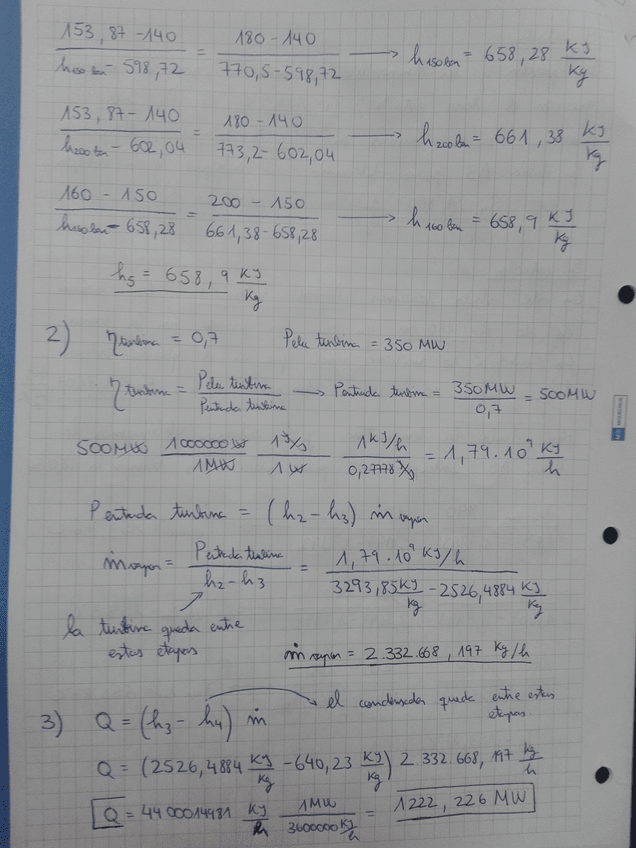 153,87-140 / h150bar - 598,72 = 180-140 / 770,5-598,72 → h150bar = 658,28 KJ/Kg
153,87-140 / h200bar - 602,04 = 180-140 / 773,2-602,04 → h200bar = 661,38 KJ/Kg
160-150 / h160bar - 658,28 = 200-150 / 661,38-658,28 → h160bar = 658,9 KJ/Kg
h5 = 658,9 KJ/Kg
2) ηturbina = 0,7 Pela turbina = 350 MW
ηturbina = Pela turbina / Pentrada turbina → Pentrada turbina = 350MW / 0,7 = 500MW
500MW 1000000W / 1MW 1J/s / 1W 1KJ/h / 0,27778J/s = 1,79·10⁹ KJ/h
Pentrada turbina = (h2-h3) ṁvapor
ṁvapor = Pentrada turbina / h2-h3 = 1,79·10⁹ KJ/h / 3293,85 KJ/Kg - 2526,4884 KJ/Kg
la turbina queda entre
estas etapas
ṁvapor = 2.332.668,197 Kg/h
3) Q = (h3 - h4) ṁ → el condensador queda entre estas
etapas
Q = (2526,4884 KJ/Kg - 640,23 KJ/Kg) 2.332.668,197 kg/h
Q = 4400014981 KJ/h 1MW / 3600000KJ/h = 1222,226 MW